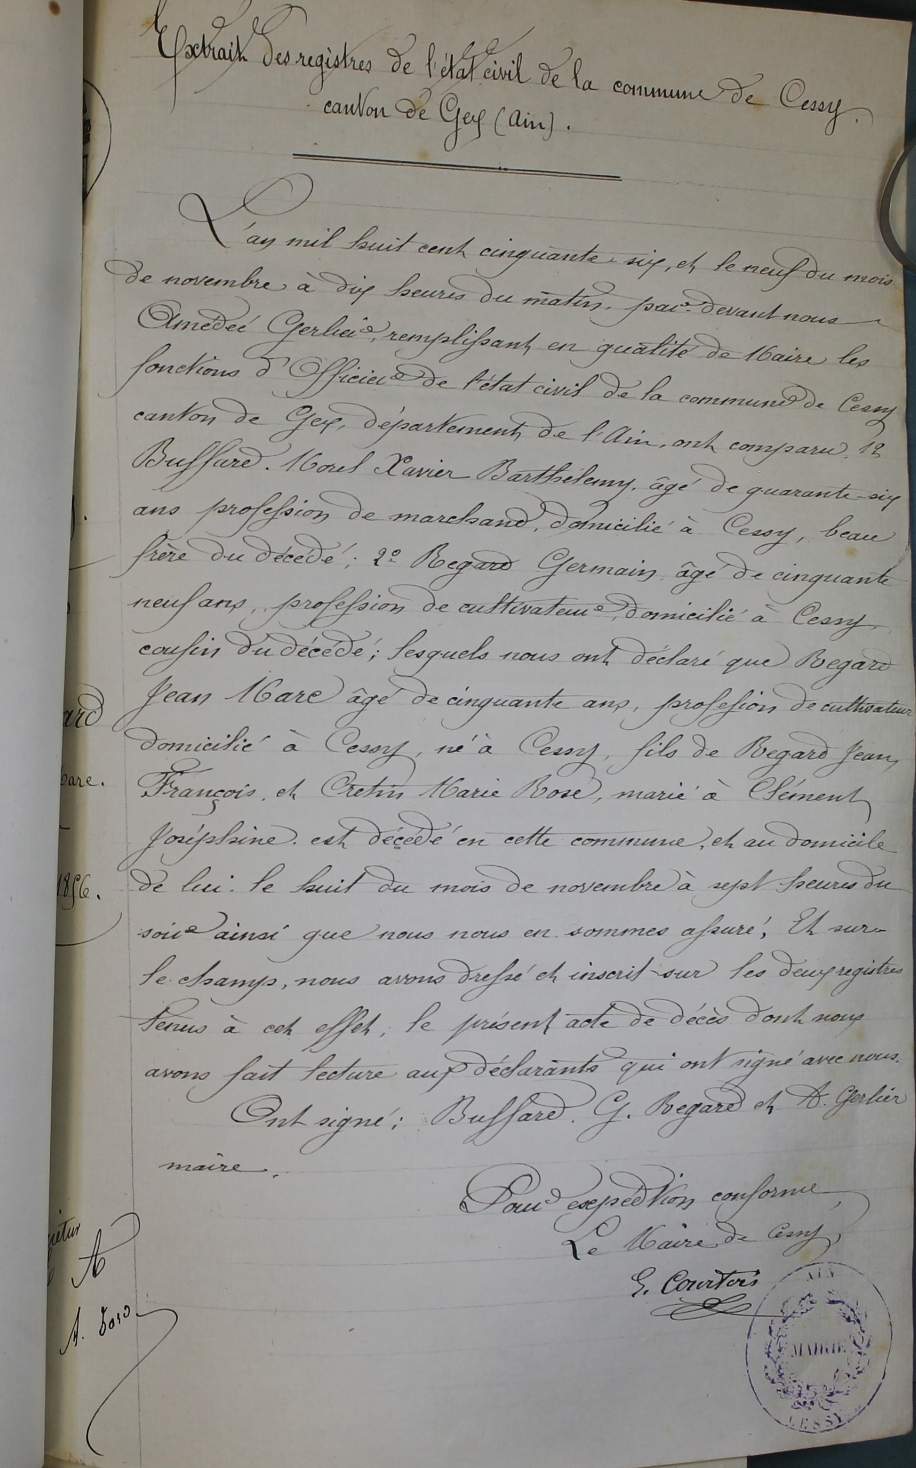 Extrait des registres de l'état civil de la commune de Cessy.
canton de Gex (Ain).
L'an mil huit cent cinquante-six, et le neuf du mois
de novembre à dix heures du matin, par devant nous
Amédée Gerlier, remplissant en qualité de Maire les
fonctions d'Officier de l'état civil de la commune de Cessy
canton de Gex, département de l'Ain, ont comparu, 1o
Buffard-Morel Xavier Barthélemy, âgé de quarante-six
ans profession de marchand, domicilié à Cessy, beau
frère du décédé; 2o Regard Germain âgé de cinquante
neuf ans, profession de cultivateur, domicilié à Cessy,
cousin du décédé; lesquels nous ont déclaré que Regard
Jean Marc âgé de cinquante ans, profession de cultivateur
domicilié à Cessy, né à Cessy, fils de Regard Jean,
François, et Cretin Marie Rose, marié à Clément
Joséphine, est décédé en cette commune, et au domicile
de lui, le huit du mois de novembre à sept heures du
soir ainsi que nous nous en sommes assuré; Et sur-
le champ, nous avons dressé et inscrit sur les deux registres
tenus à cet effet, le présent acte de décès dont nous
avons fait lecture aux déclarants qui ont signé avec nous.
Ont signé; Buffard, G. Regard et A. Gerlier
maire.
Pour expédition conforme,
Le Maire de Cessy,
G. Courtois
AIN
MAIRIE
CESSY
ard
arc.
1856.
A